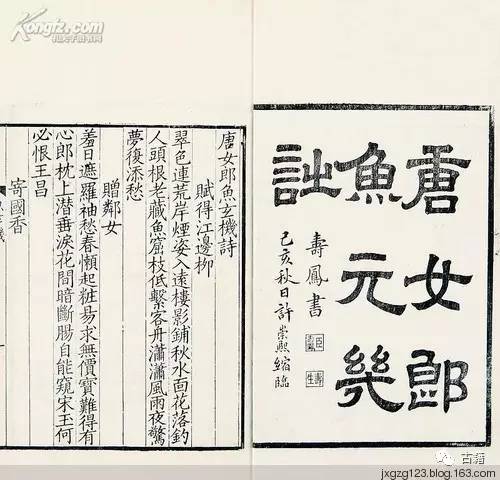 唐女郎
魚元幾
詩
壽鳳書
己亥秋日許崇熙縮臨
唐女郎魚玄機詩
賦得江邊柳
翠色連荒岸煙姿入遠樓影鋪秋水面花落釣
人頭根老藏魚窟枝低繫客舟瀟瀟風雨夜驚
夢復添愁
贈鄰女
羞日遮羅袖愁春懶起粧易求無價寶難得有
心郎枕上潛垂淚花間暗斷腸自能窺宋玉何
必恨王昌
寄國香
Kongfz.com
古籍
jxgzg123.blog.163.com